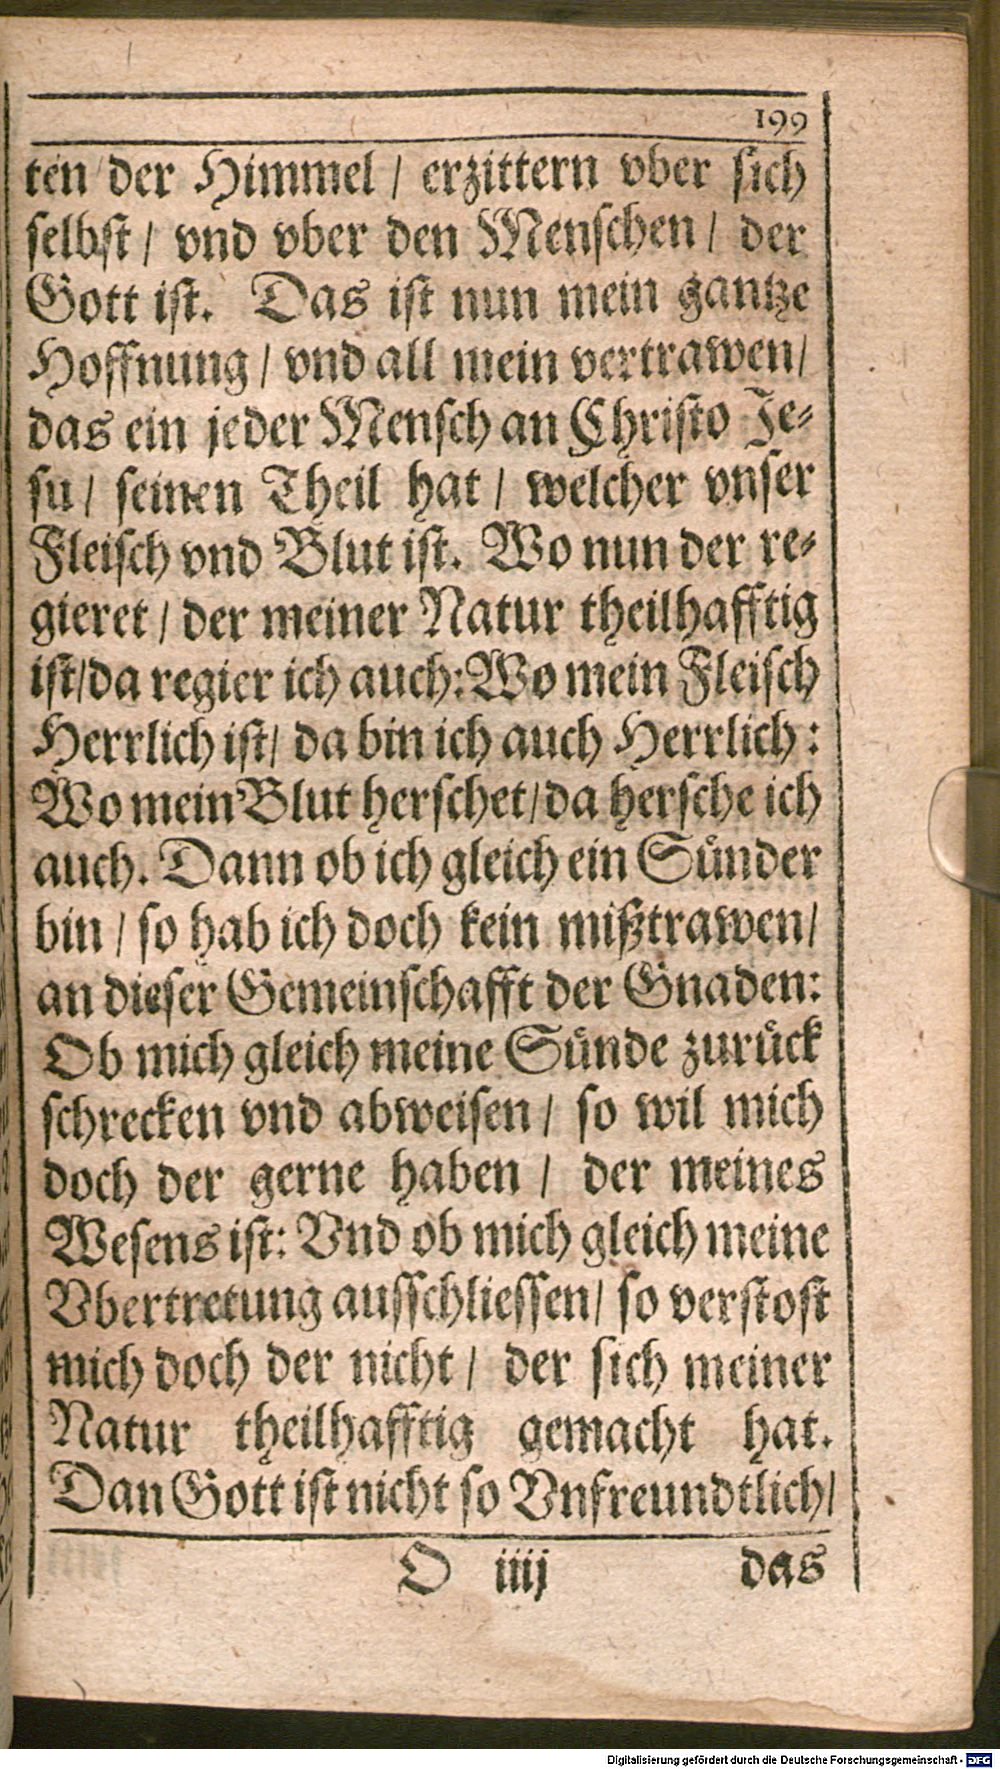 199
ten der Himmel / erzittern vber sich
selbst / vnd vber den Menschen / der
Gott ist. Das ist nun mein gantze
Hoffnung / vnd all mein vertrawen /
das ein jeder Mensch an Christo Je-
su / seinen Theil hat / welcher vnser
Fleisch vnd Blut ist. Wo nun der re-
gieret / der meiner Natur theilhafftig
ist / da regier ich auch: Wo mein Fleisch
Herrlich ist / da bin ich auch Herrlich:
Wo mein Blut herschet / da hersche ich
auch. Dann ob ich gleich ein Sünder
bin / so hab ich doch kein mißtrawen /
an dieser Gemeinschafft der Gnaden:
Ob mich gleich meine Sünde zurück
schrecken vnd abweisen / so wil mich
doch der gerne haben / der meines
Wesens ist: Vnd ob mich gleich meine
Vbertretung ausschliessen / so verstost
mich doch der nicht / der sich meiner
Natur theilhafftig gemacht hat.
Dan Gott ist nicht so Vnfreundtlich /
O iiij das
Digitalisierung gefördert durch die Deutsche Forschungsgemeinschaft - DFG